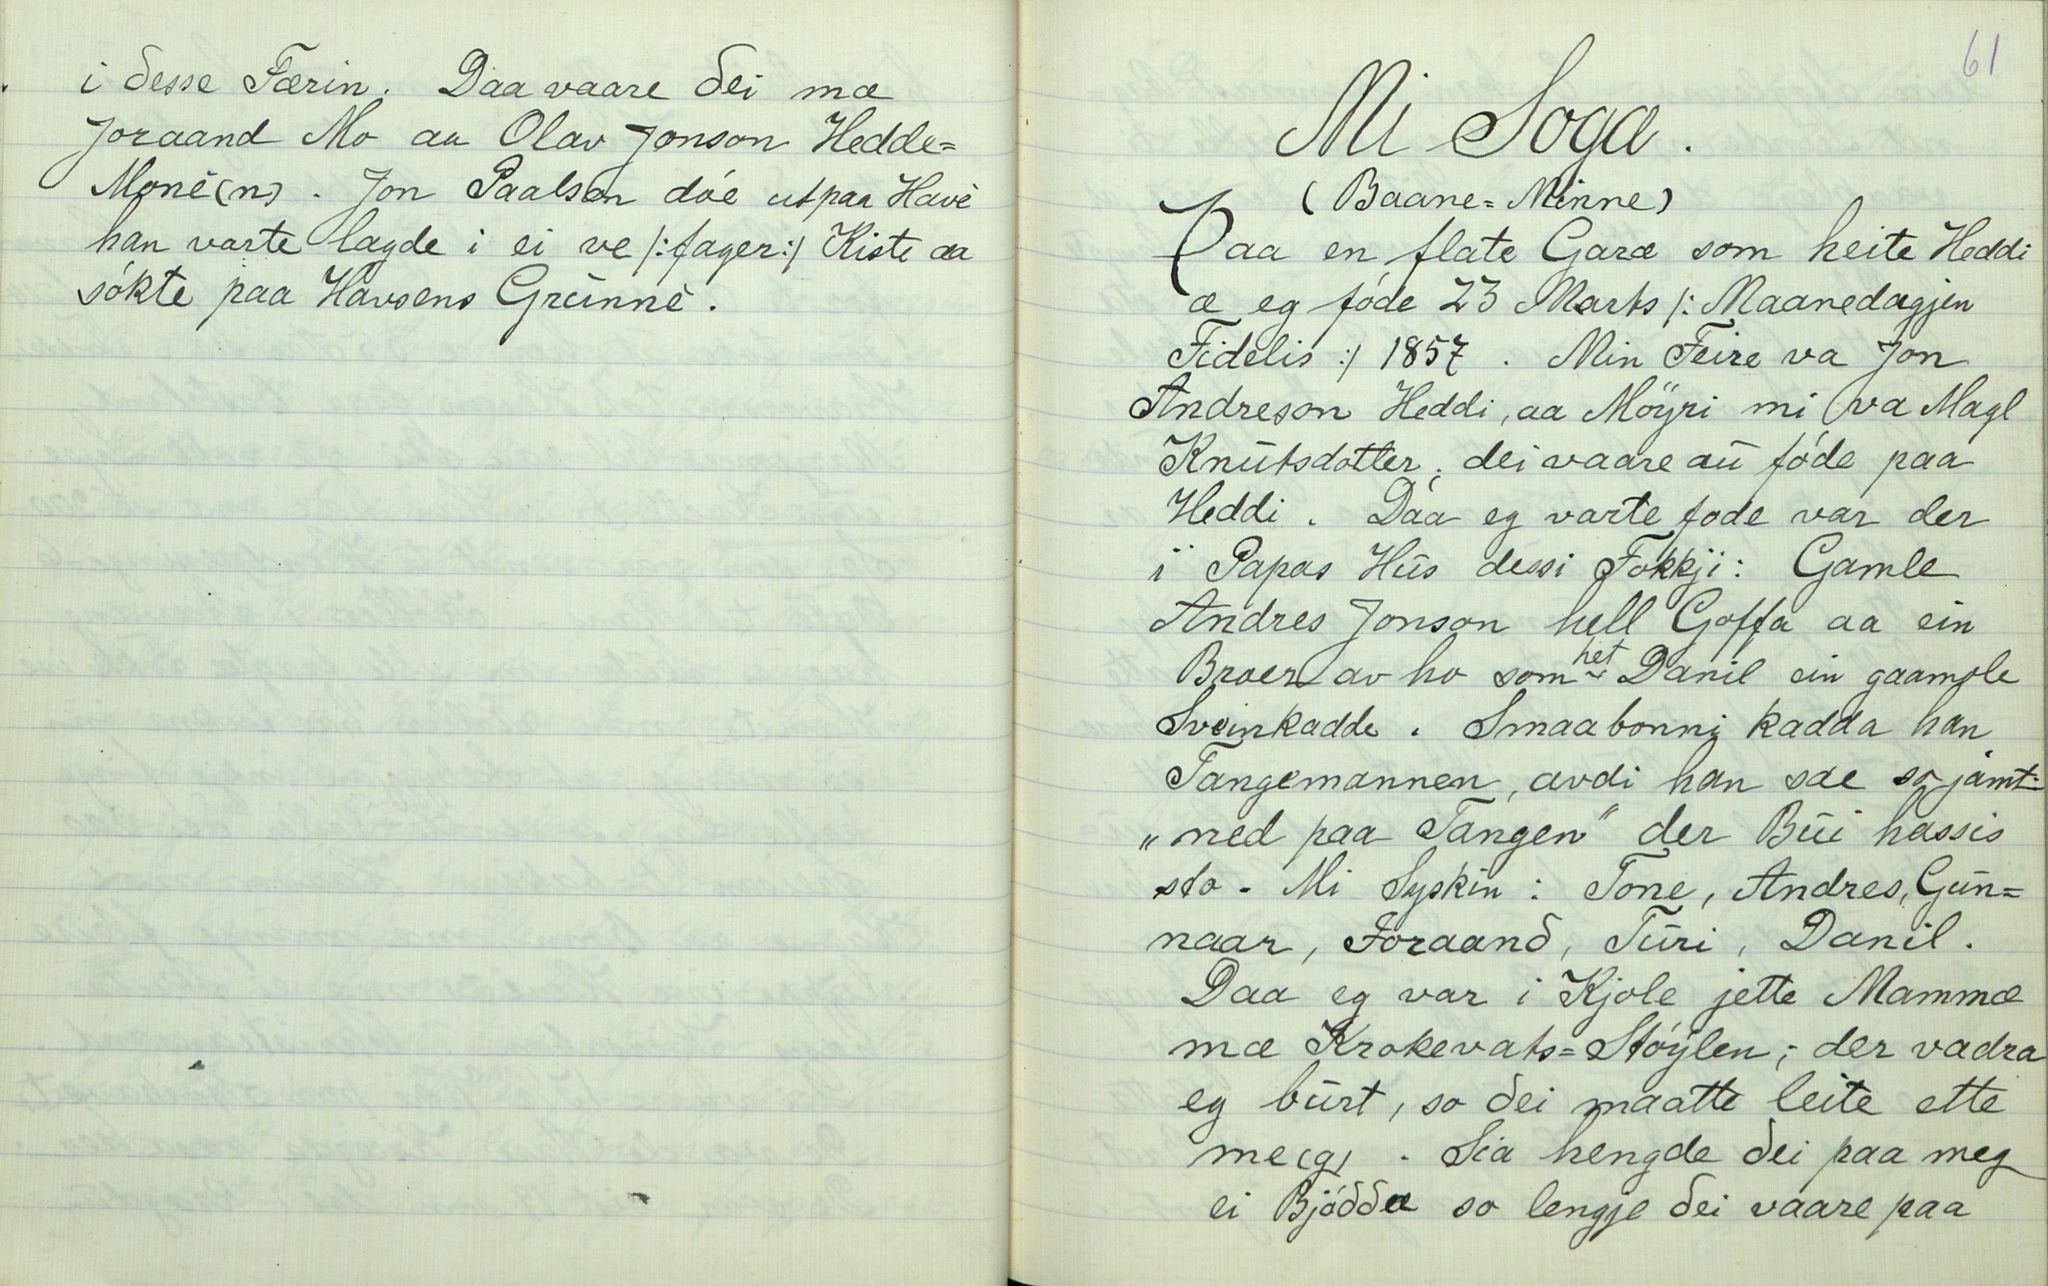 i desse Færin. Daa vaare dei mæ
Joraand Mo aa Olav Jonson Hedde=
Monè(n). Jon Paalson dóe utpaa Havè
han varte lagde i ei ve /:fager:/ Kiste aa
sókte paa Havsens Grŭnnè.
61
Mi Soga.
(Baane=Minne)
Paa en flate Garæ som heite Heddi
æ eg fóde 23 Marts /: Maanedagjen
Fidelis :/ 1857. Min Feire va Jon
Andreson Heddi, aa Möyri mi va Magl
Knŭtsdotter; dei vaare aŭ fóde paa
Heddi. Dáa eg varte fode var der
i Papas Hŭs dessi Fokkji: Gamle
Andres Jonson hell Goffa aa ein
Broer av ho som het Danil ein gaample
Sveinkadde. Smaabonni kadda han
Tangemannen, avdi han sae so jamt:
„ned paa Tangen" der Bŭi hassis
sto. Mi Syskin: Tone, Andres, Gŭn=
naar, Joraand, Tŭri, Danil.
Daa eg var i Kjole jette Mammæ
mæ Krokevats=Stóylen; der vadra
eg bŭrt, so dei maatte leite ette
me(g). Sia hengde dei paa meg
ei Bjødda so lengje dei vaare paa